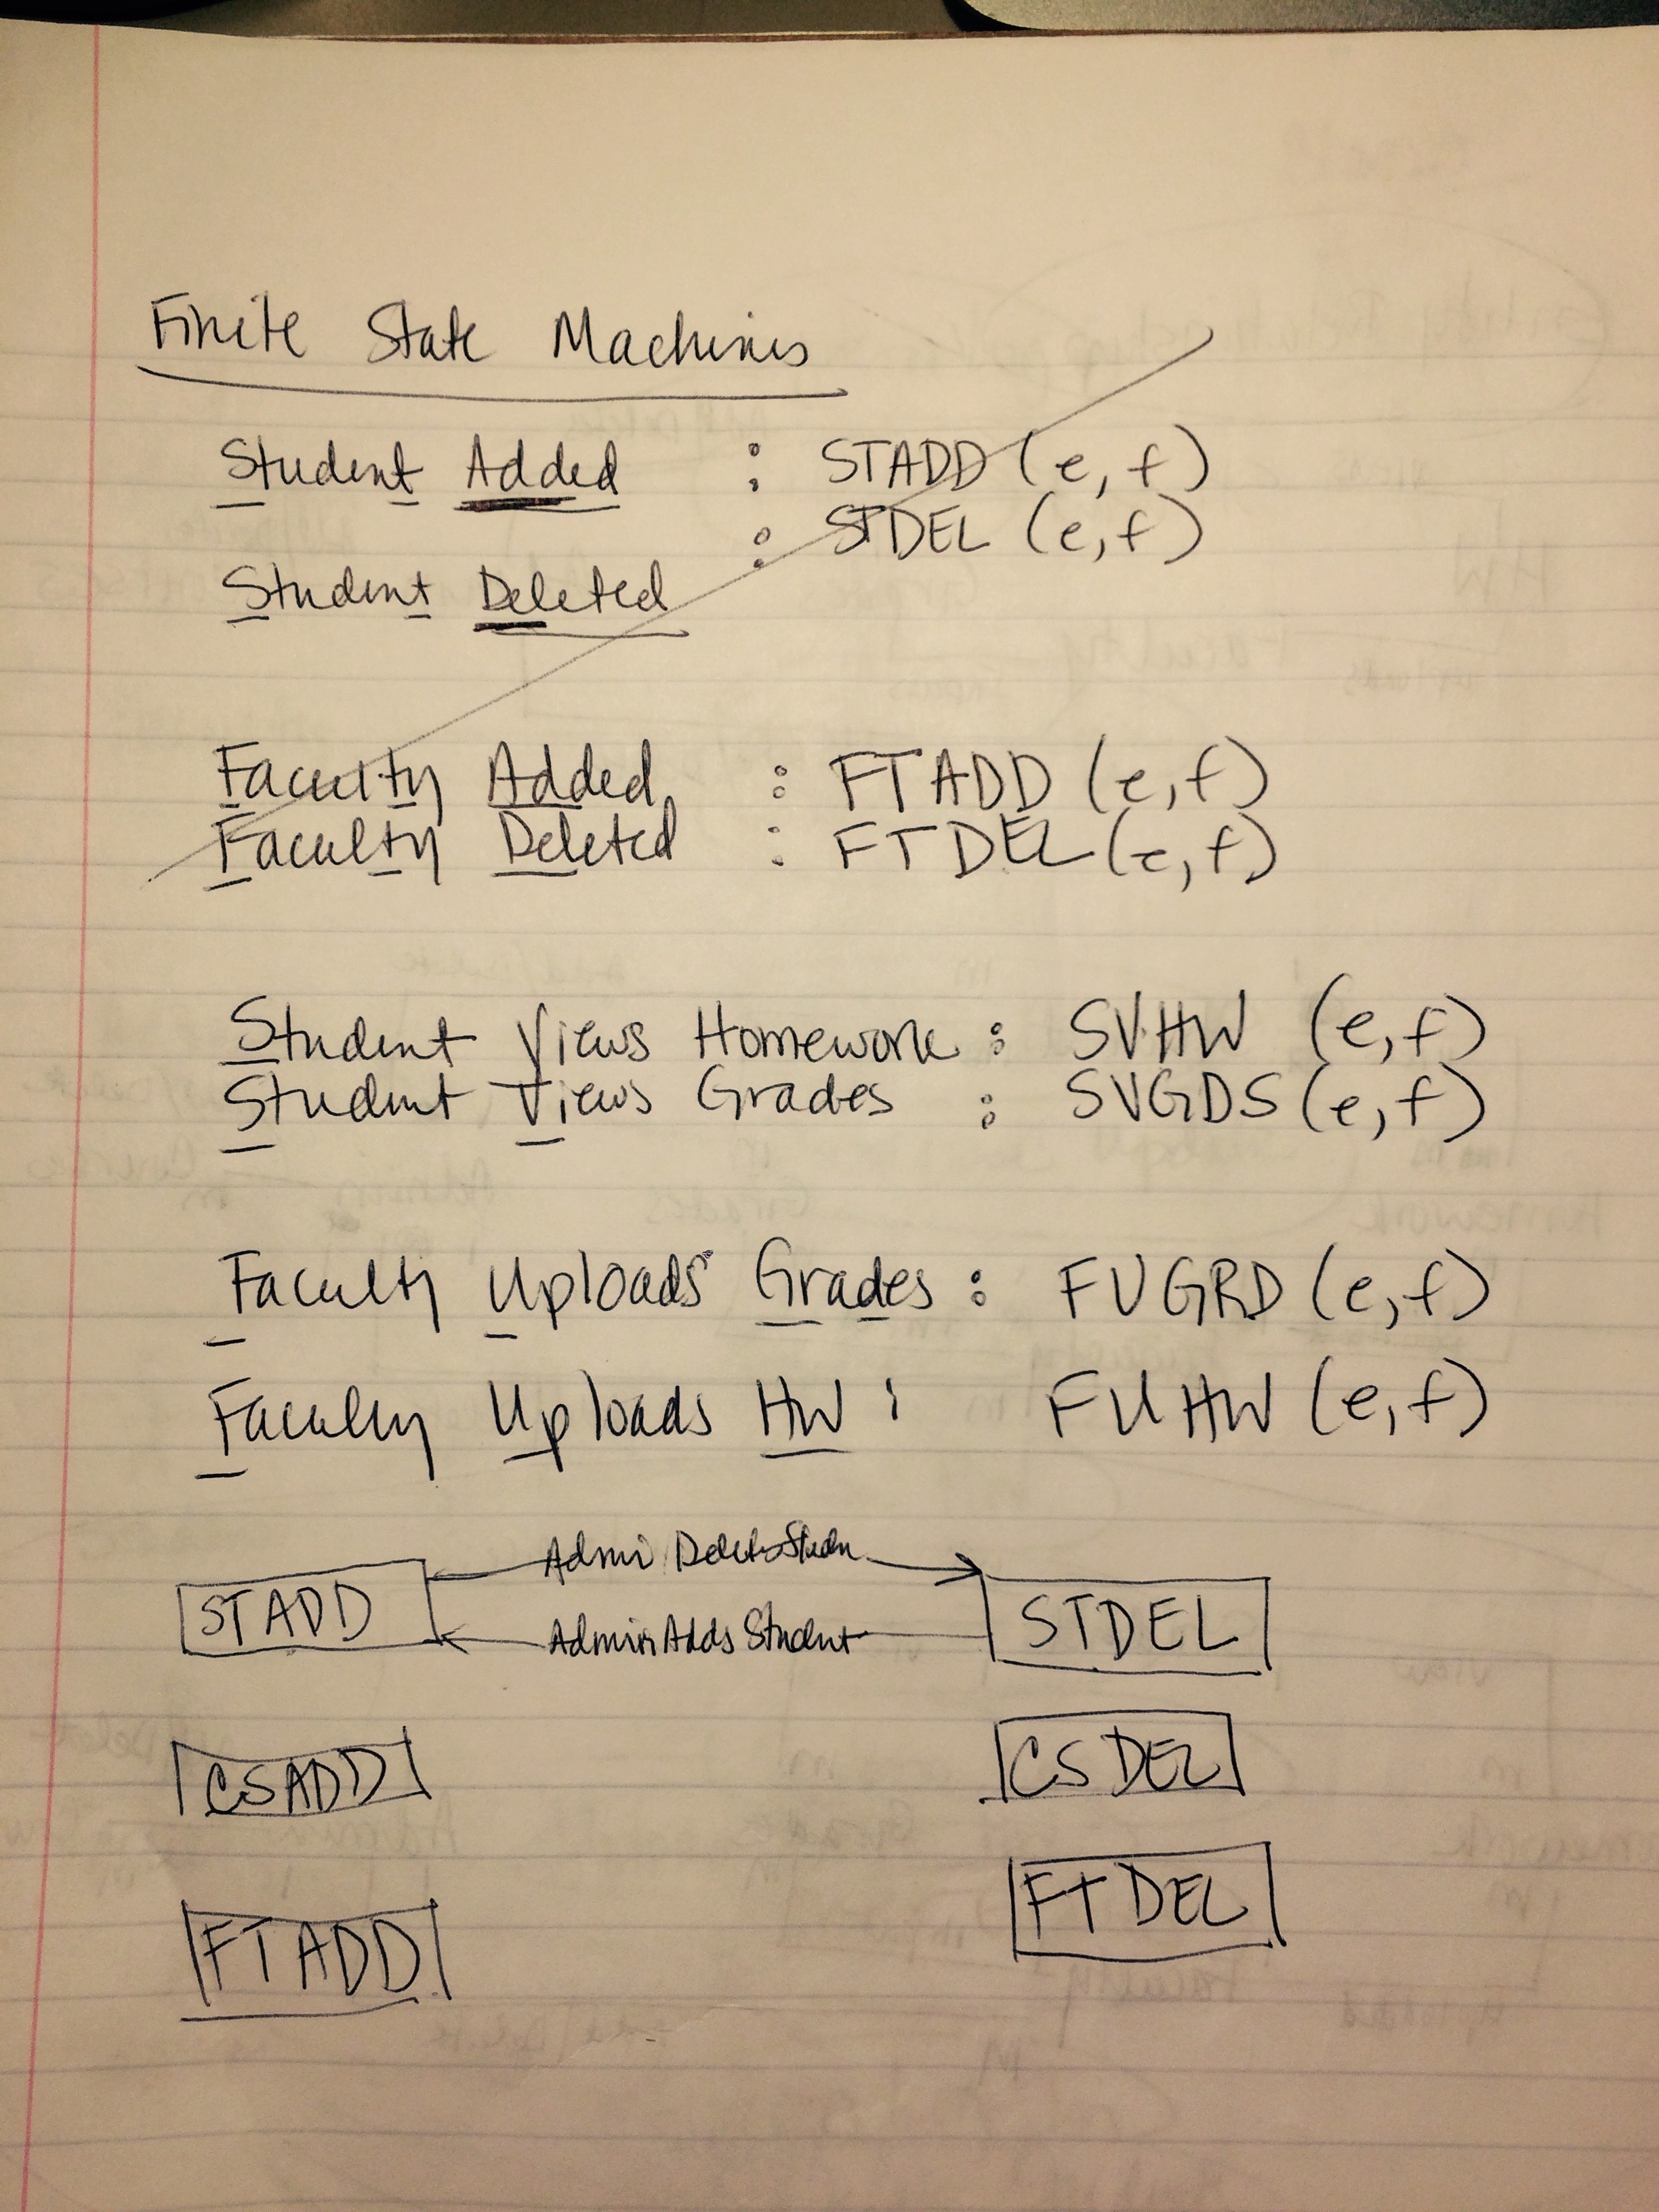 Finite State Machines
Student Added : STADD (e, f)
: STDEL (e, f)
Student Deleted
Faculty Added : FTADD (e, f)
Faculty Deleted : FTDEL (e, f)
Student Views Homework : SVHW (e, f)
Student Views Grades : SVGDS (e, f)
Faculty Uploads Grades : FUGRD (e, f)
Faculty Uploads HW : FUHW (e, f)
Admin Deletes Studen
STADD STDEL
Admin Adds Student
CSADD CSDEL
FTADD FTDEL